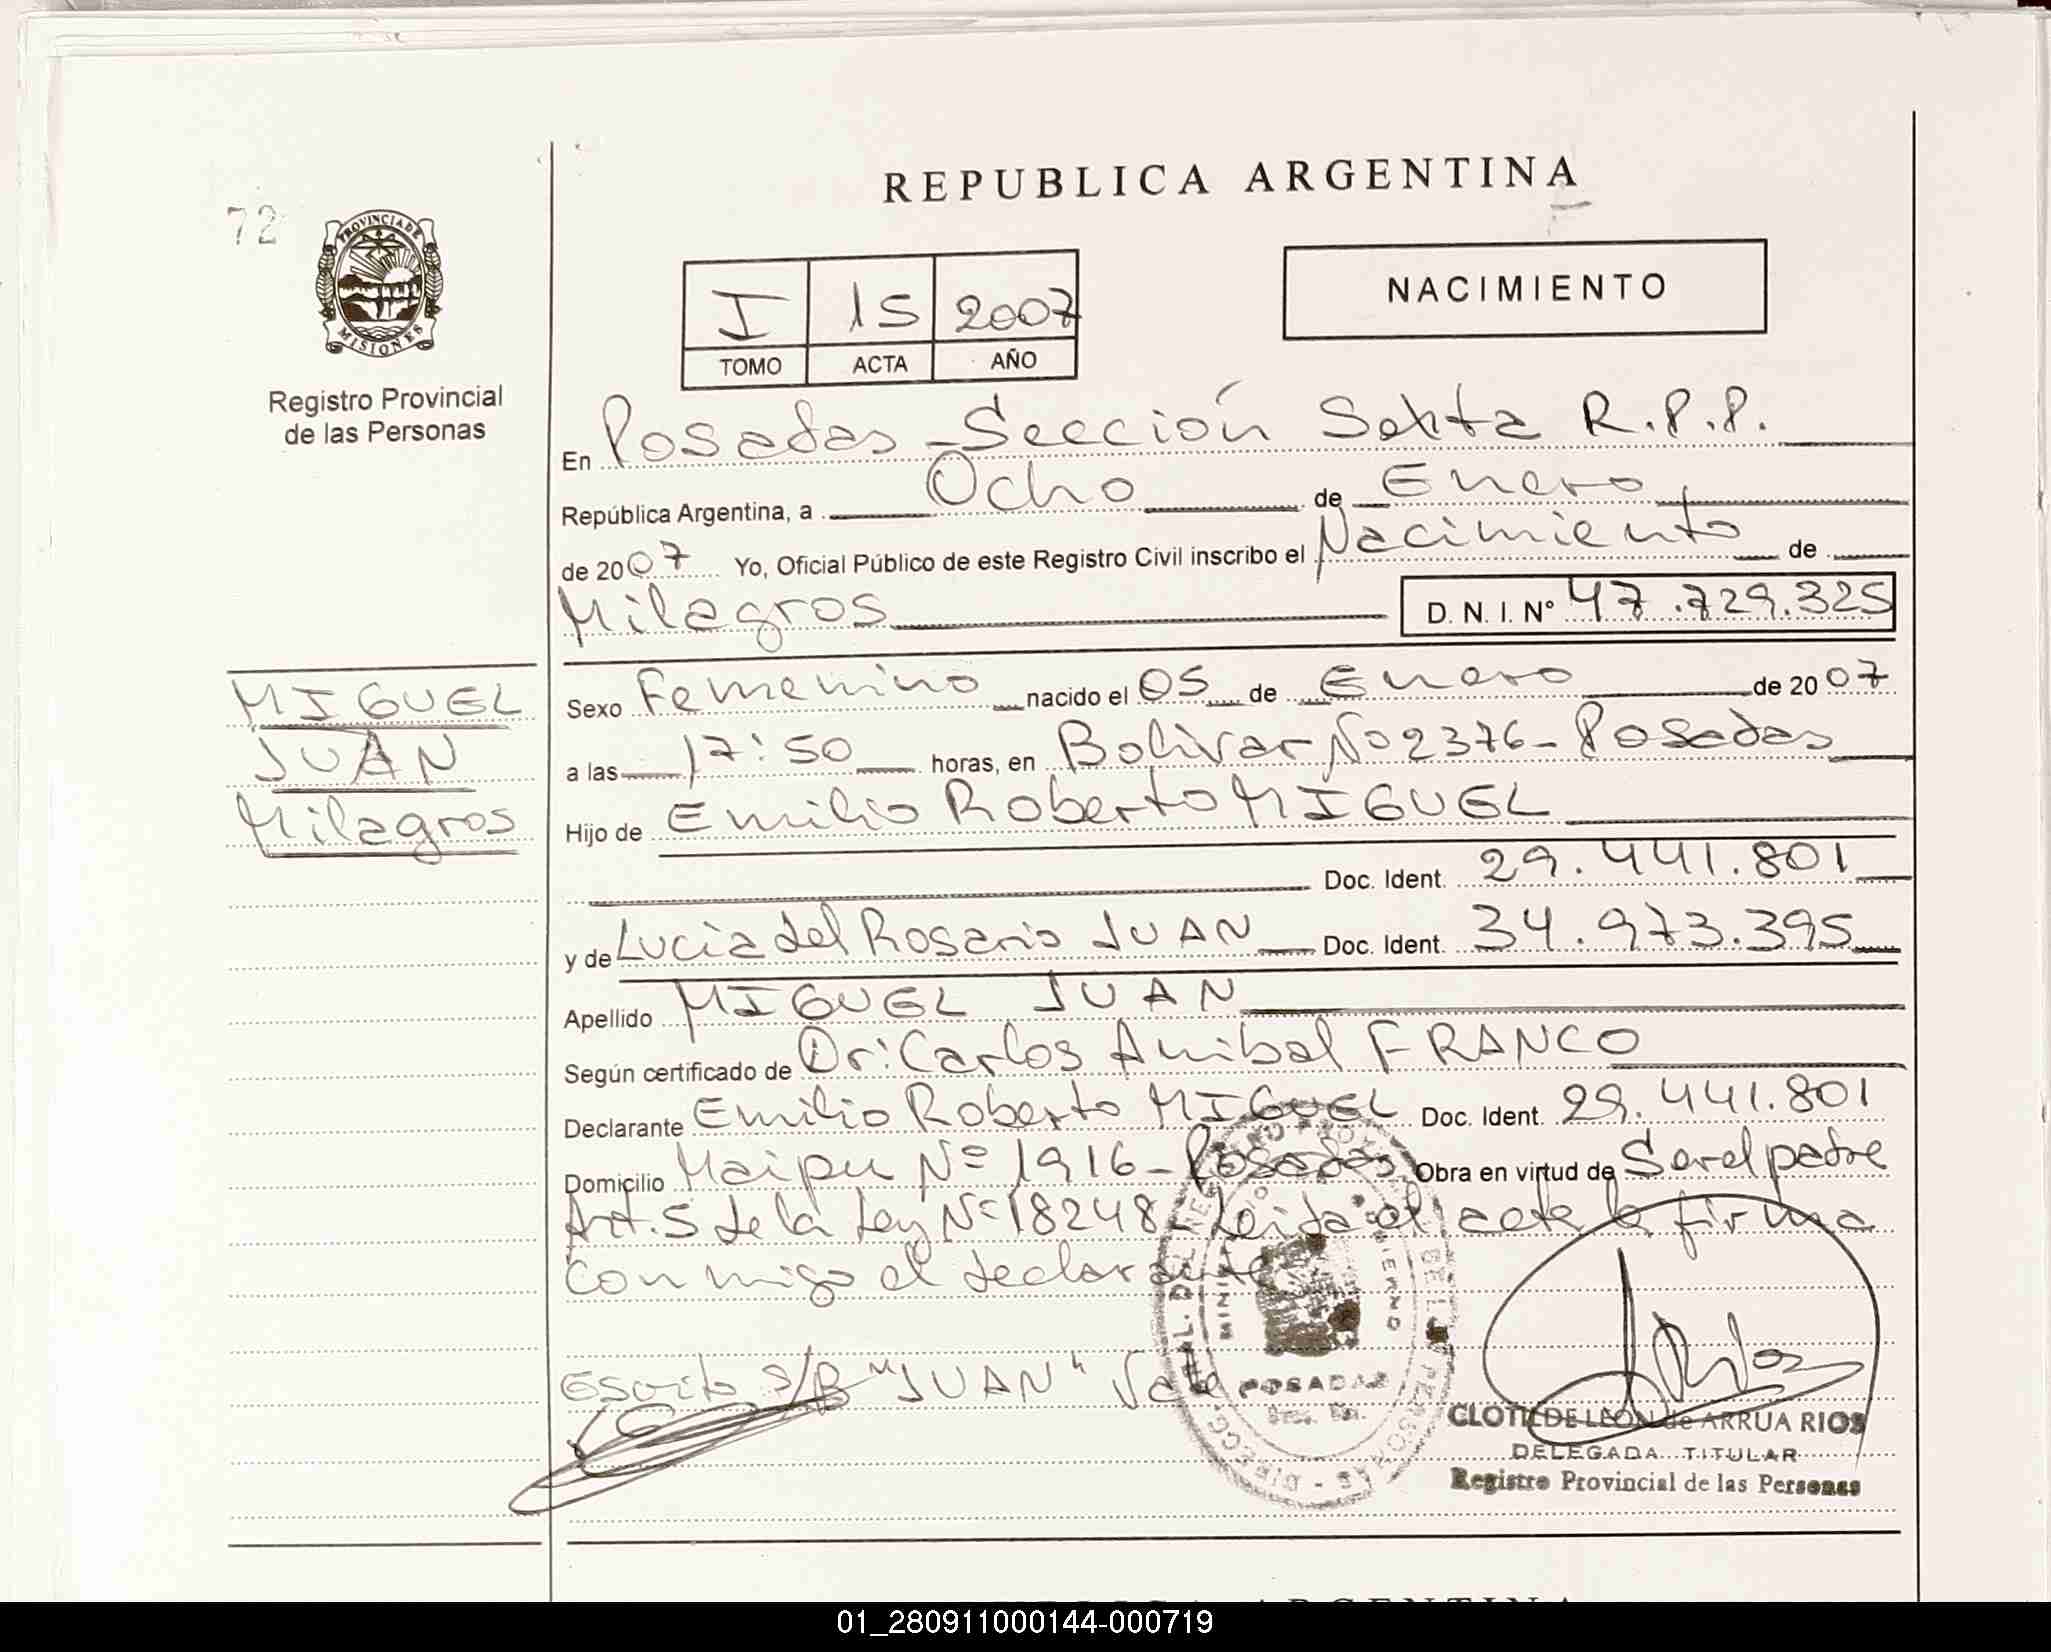 REPUBLICA ARGENTINA
72
PROVINCIA DE
MISIONES
Registro Provincial
de las Personas
I 15 2007
TOMO ACTA AÑO
NACIMIENTO
En Posadas - Sección Sexta R.P.P.
República Argentina, a Ocho de Enero
de 2007 Yo, Oficial Público de este Registro Civil inscribo el Nacimiento de
Milagros D. N. I. N° 47.729.325
MIGUEL
JUAN
Milagros
Sexo Femenino nacido el 05 de Enero de 2007
a las 17:50 horas, en Bolivar Nº 2376 - Posadas
Hijo de Emilio Roberto MIGUEL
Doc. Ident. 29.441.801
y de Lucia del Rosario JUAN Doc. Ident. 34.973.395
Apellido MIGUEL JUAN
Según certificado de Dr: Carlos Anibal FRANCO
Declarante Emilio Roberto MIGUEL Doc. Ident. 29.441.801
Domicilio Maipu Nº 1916 - Posadas Obra en virtud de Ser el padre
Art. 5 de la Ley Nº 18248 Leida el acta la firma
conmigo el declarante
Escrito S/R "JUAN" Vale
POSADAS
CLOTILDE LEON de ARRUA RIOS
DELEGADA TITULAR
Registro Provincial de las Personas
01_280911000144-000719